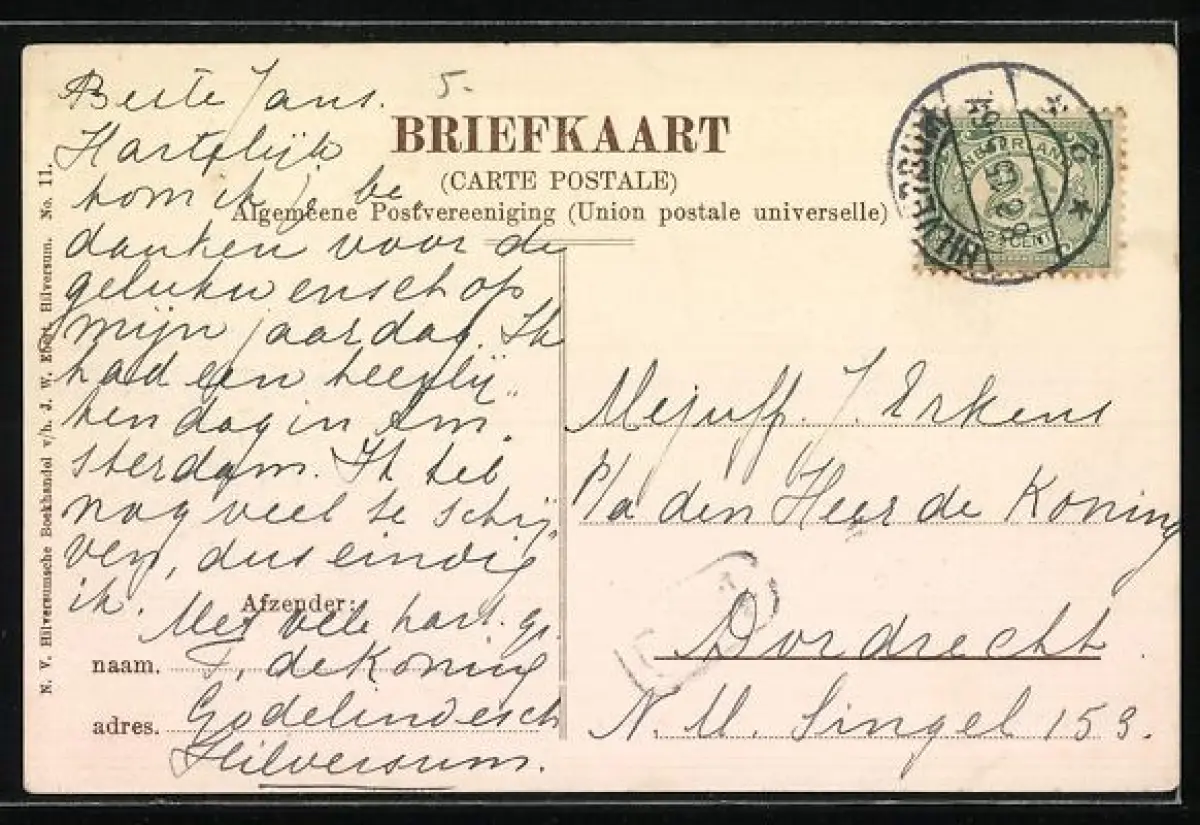 5.
BRIEFKAART
(CARTE POSTALE)
Algemeene Postvereeniging (Union postale universelle)
Beste Jans.
Hartelijk
kom ik je be„
danken voor de
gelukwensch op
mijn jaardag. Ik
had een heerlij„
ken dag in Am„
sterdam. Ik heb
nog veel te schrij„
ven, dus eindig
ik.
Afzender:
Met vele hart. gr.
naam. F. de Koning
adres. Godelindesch
Hilversum.
Mejuff. J. Erkens
p/a den Heer de Koning
Dordrecht.
N. M. Singel 153.
N. V. Hilversumsche Boekhandel v/h. J. W. Ebert, Hilversum. No. 11.
HILVERSUM
NEDERLAND
CENT